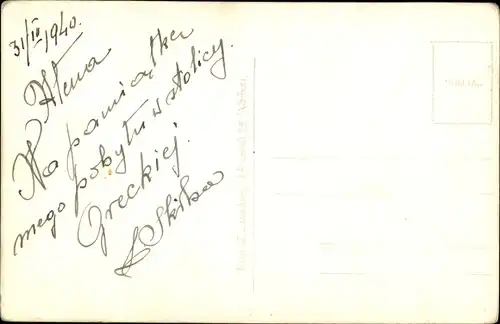 31/III 1940.
Atena
Na pamiątkę
mego pobytu w stolicy
Greckiej.
Skiba